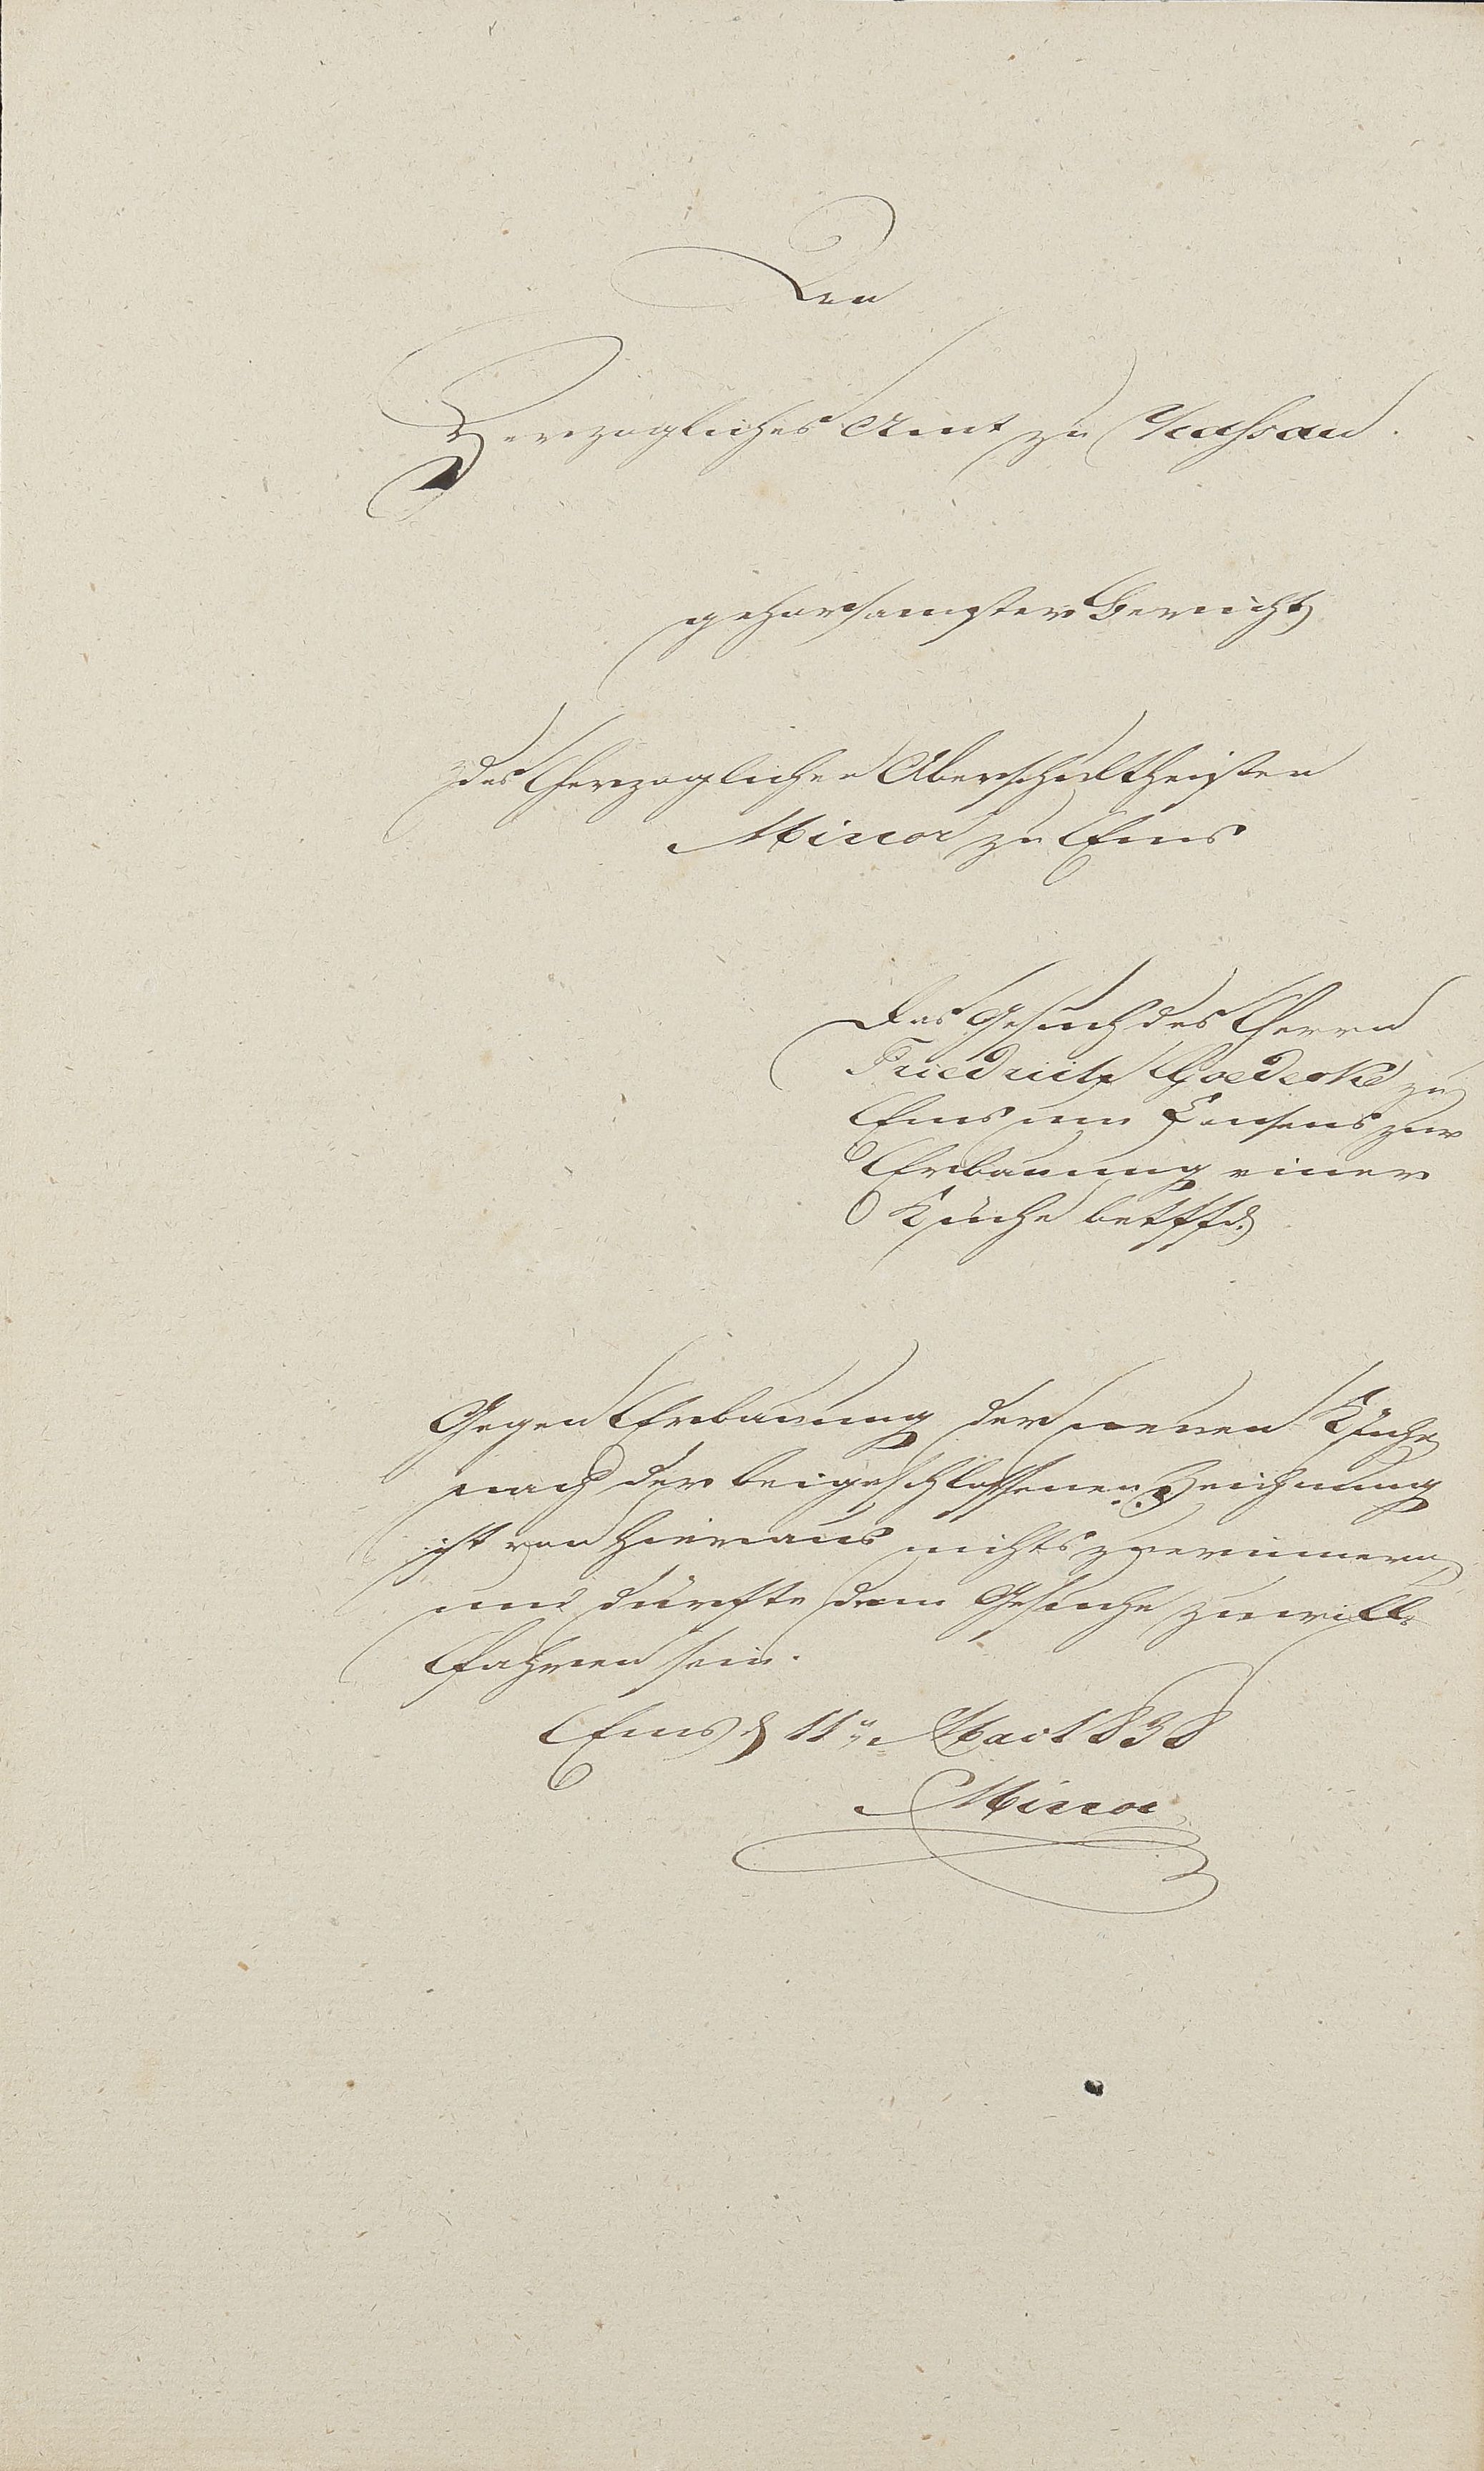 An
Herzogliches Amt zu Nassau.
gehorsamster Bericht
des Herzoglichen Oberschultheisen
Minor zu Ems
Das Gesuch des Herrn
Friedrich Goedecke zu
Ems um Consens zur
Erbauung einer
Küche betffd.
Gegen Erbauung der neuen Küche
nach der beigeschlossenen Zeichnung
ist von hieraus nichts zu erinnern,
und dürfte dem Gesuche zu will-
fahren sein.
Ems d 11n Mai 1838
Minor